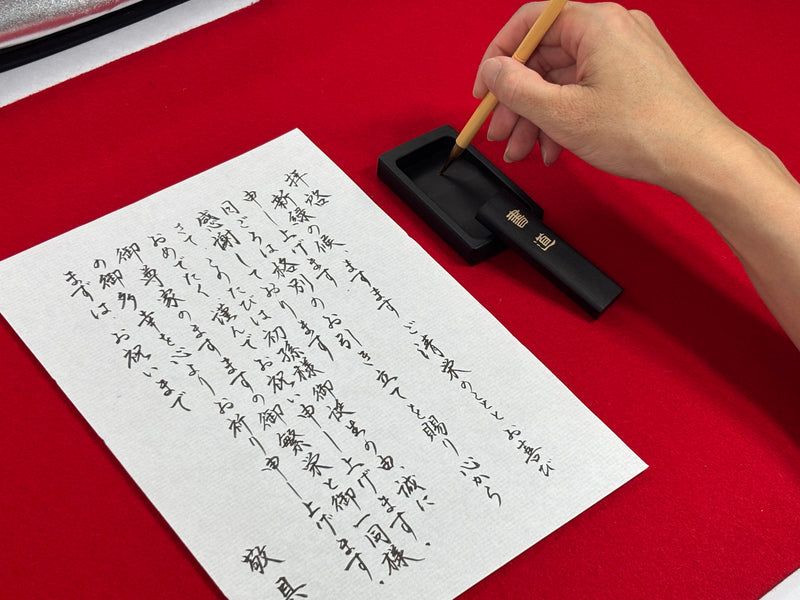 拝啓
新緑の候 ますます ご清栄のこととお喜び
申し上げます
日ごろは格別の お引き立てを賜り 心から
感謝しております
さて このたびは初孫様御誕生の由、誠に
おめでたく 謹んでお祝い申し上げます。
御尊家のますますの御繁栄と御一同様
の御多幸を心より お祈り申し上げます。
まずは、お祝いまで
敬具
書道